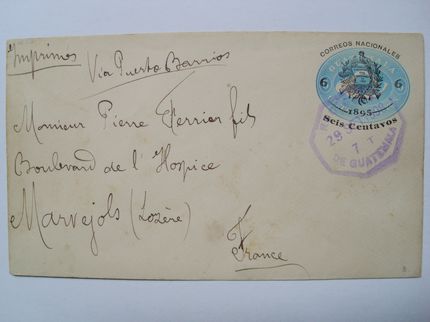 Imprimés
Via Puerto Barrios
CORREOS NACIONALES
6 6
1895
Seis Centavos
29
7
DE GUATEMALA
Monsieur Pierre Ferrier fils
Boulevard de l'Hospice
Marvejols (Lozère)
France